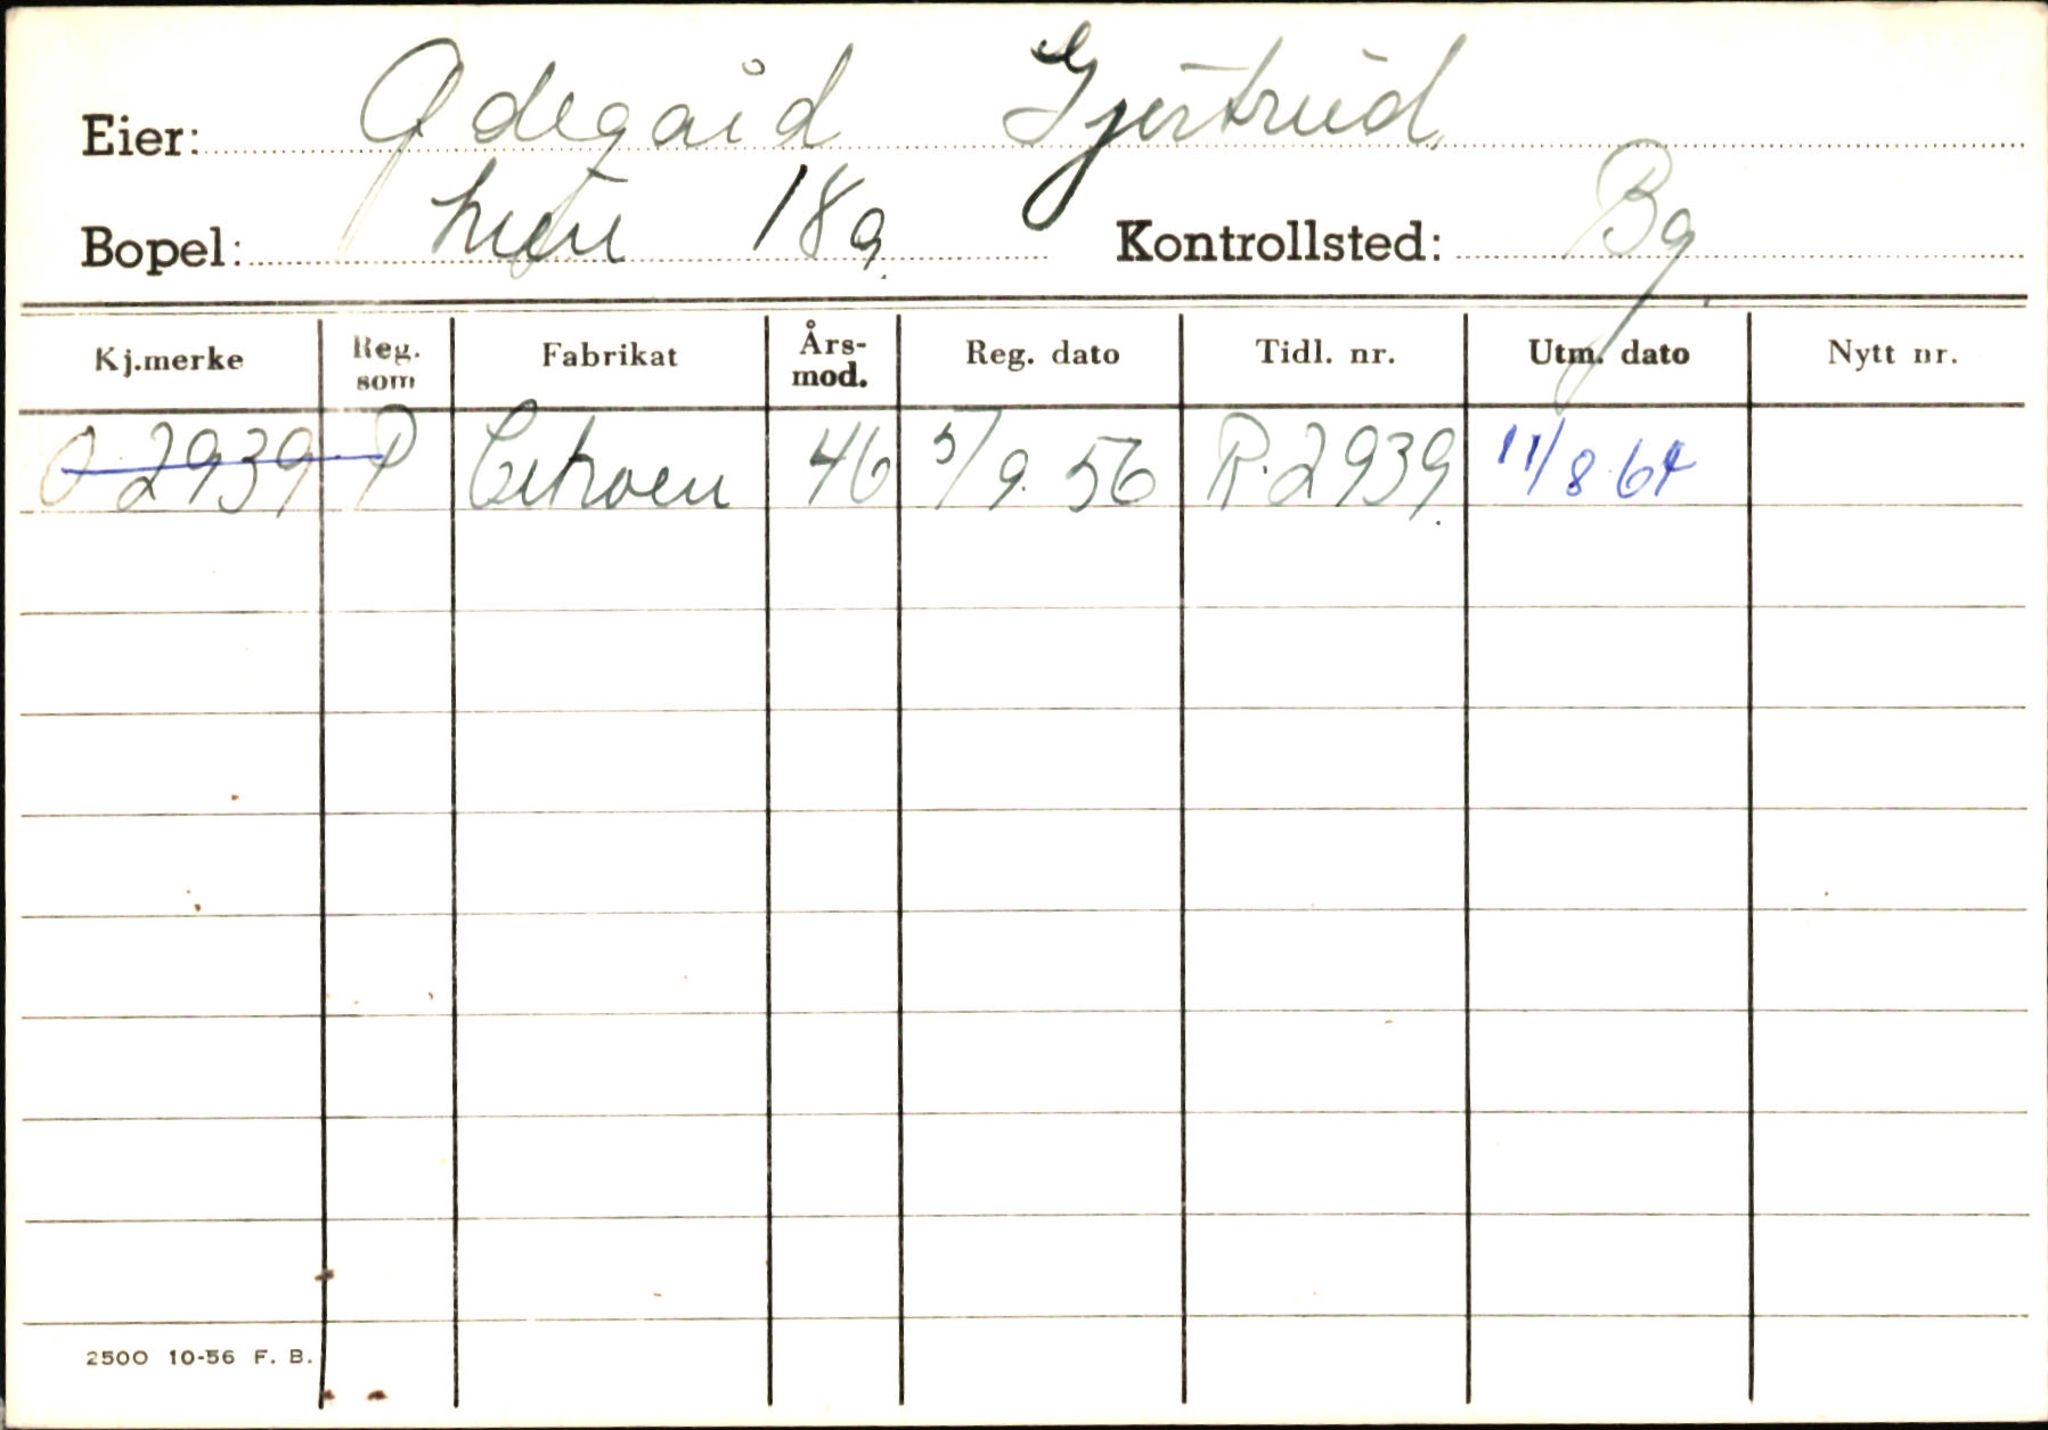 Eier: Ødegård Gjertrud.
Bopel: 18a. Kontrollsted: Bg.
Kj.merke Reg. som Fabrikat Års-mod. Reg. dato Tidl. nr. Utm. dato Nytt nr.
O-2939 P Citroen 46 5/9.56 R-2939. 11/8 64
2500 10-56 F. B.